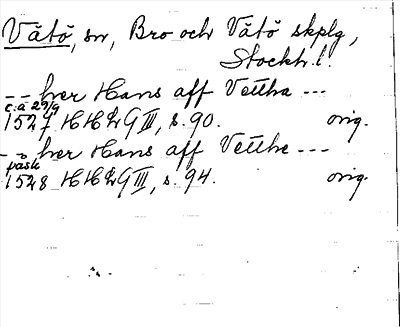 Vätö, sn, Bro och Vätö skplg,
Stockh. l.
-- her Hans aff Vettha ---
c:a 29/9
1527 HHLG III, s. 90. orig.
- her Hans aff Vetthe ---
påsk
1528 HHLG III, s. 94. orig.